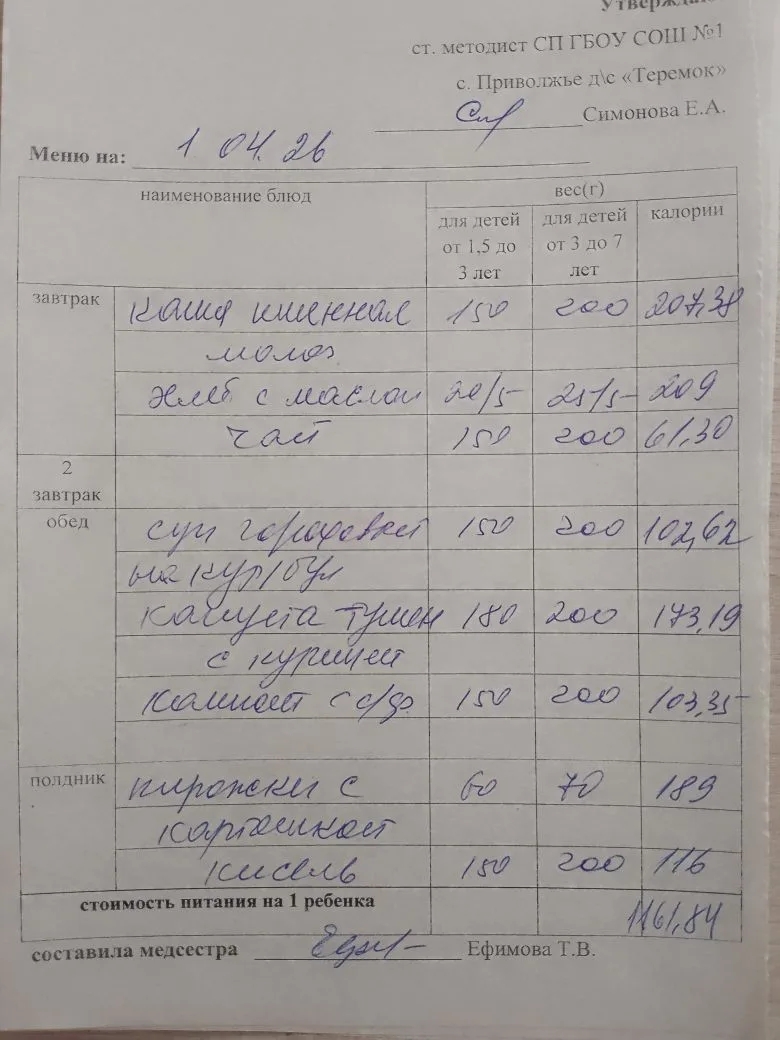 Утверждаю
ст. методист СП ГБОУ СОШ №1
с. Приволжье д\с «Теремок»
Симонова Е.А.
Меню на: 1.04.26
наименование блюд вес(г)
для детей от 1,5 до 3 лет для детей от 3 до 7 лет калории
завтрак каша пшенная 150 200 207,38
молоч
хлеб с маслом 20/5 25/5 209
чай 150 200 61,30
2 завтрак
обед суп гороховый 150 200 102,62
на кур/бул
капуста тушен 180 200 173,19
с курицей
компот с с/фр 150 200 103,35
полдник пирожки с 60 70 189
картошкой
кисель 150 200 116
стоимость питания на 1 ребенка 1161,84
составила медсестра Ефимова Т.В.